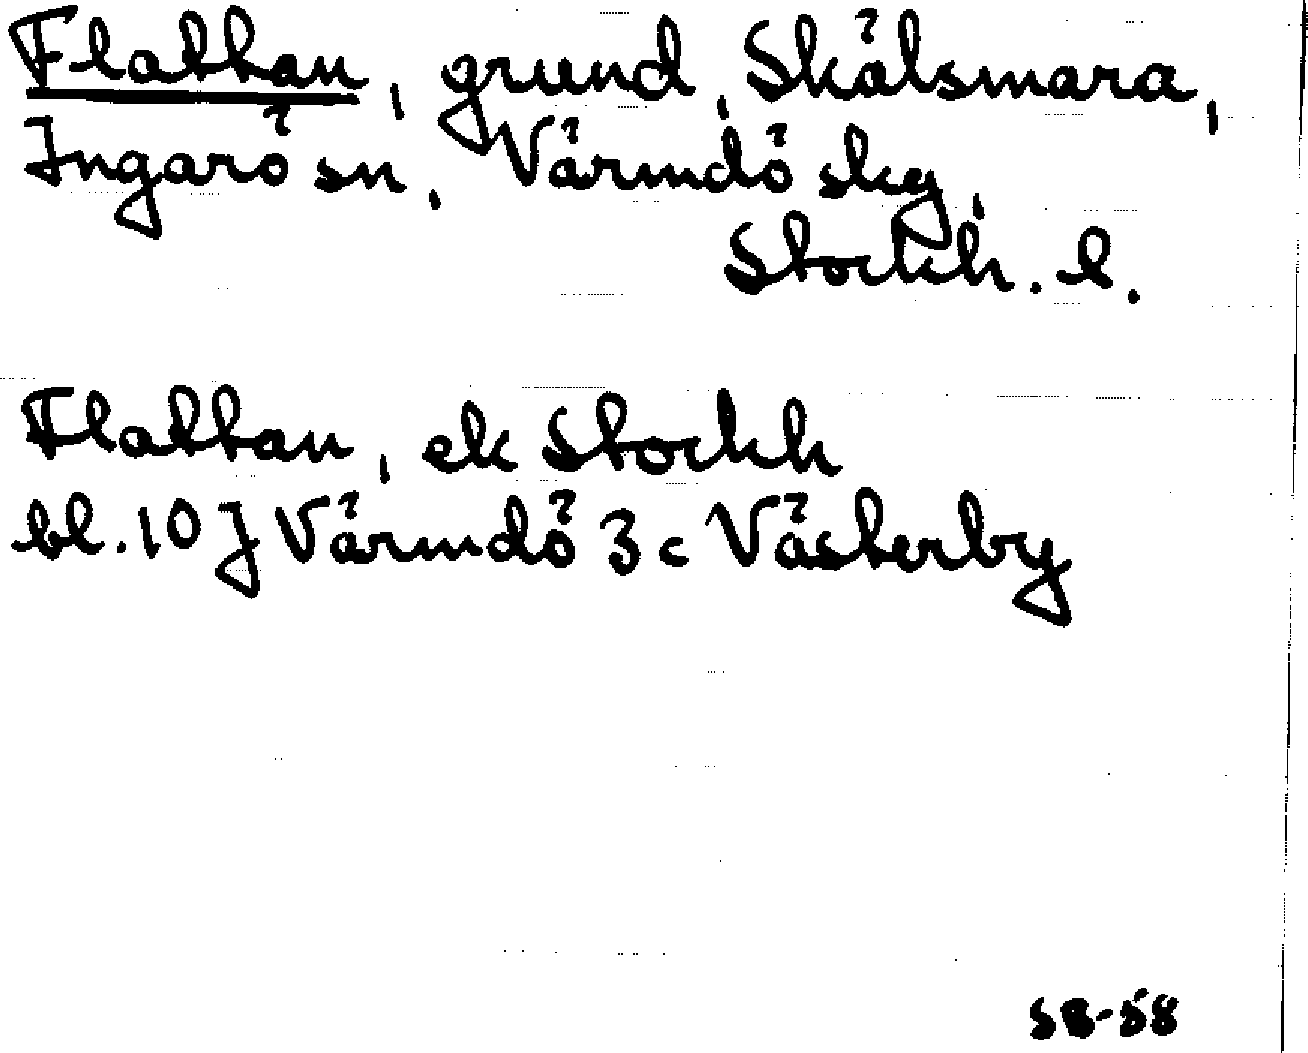 Flattan, grund, Skälsmara,
Ingarö sn, Värmdö skg,
Stockh. l.
Flattan, ek Stockh
bl. 10 J Värmdö 3 c Västerby
SB-58